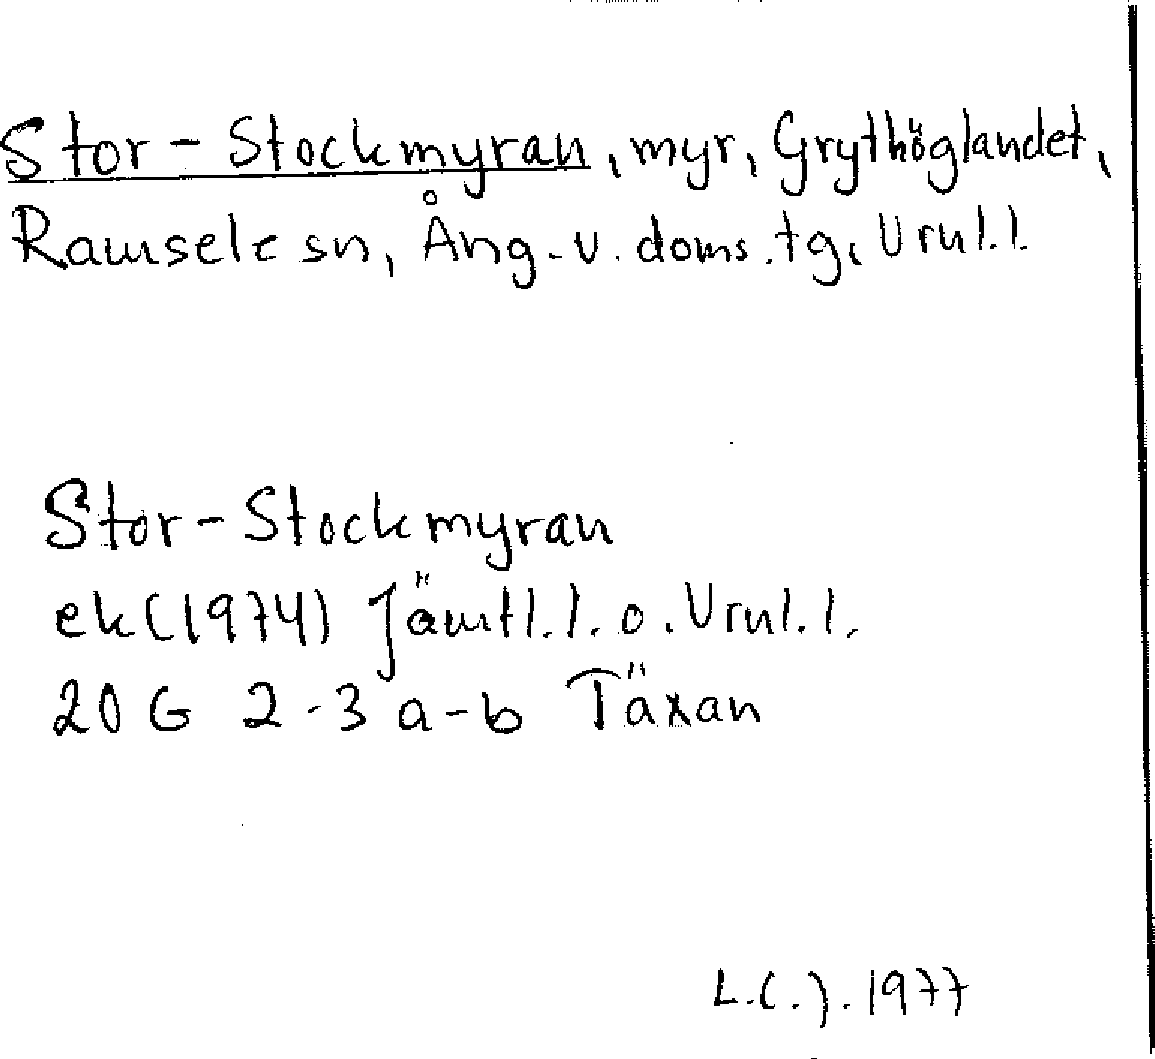 Stor-Stockmyran, myr, Grythöglandet,
Ramsele sn, Ång. v. doms.tg, Vrnl.l.
Stor-Stockmyran
ek (1974) Jämtl.l. o. Vrnl.l.
20 G 2-3 a-b Täxan
L.C.J. 1977